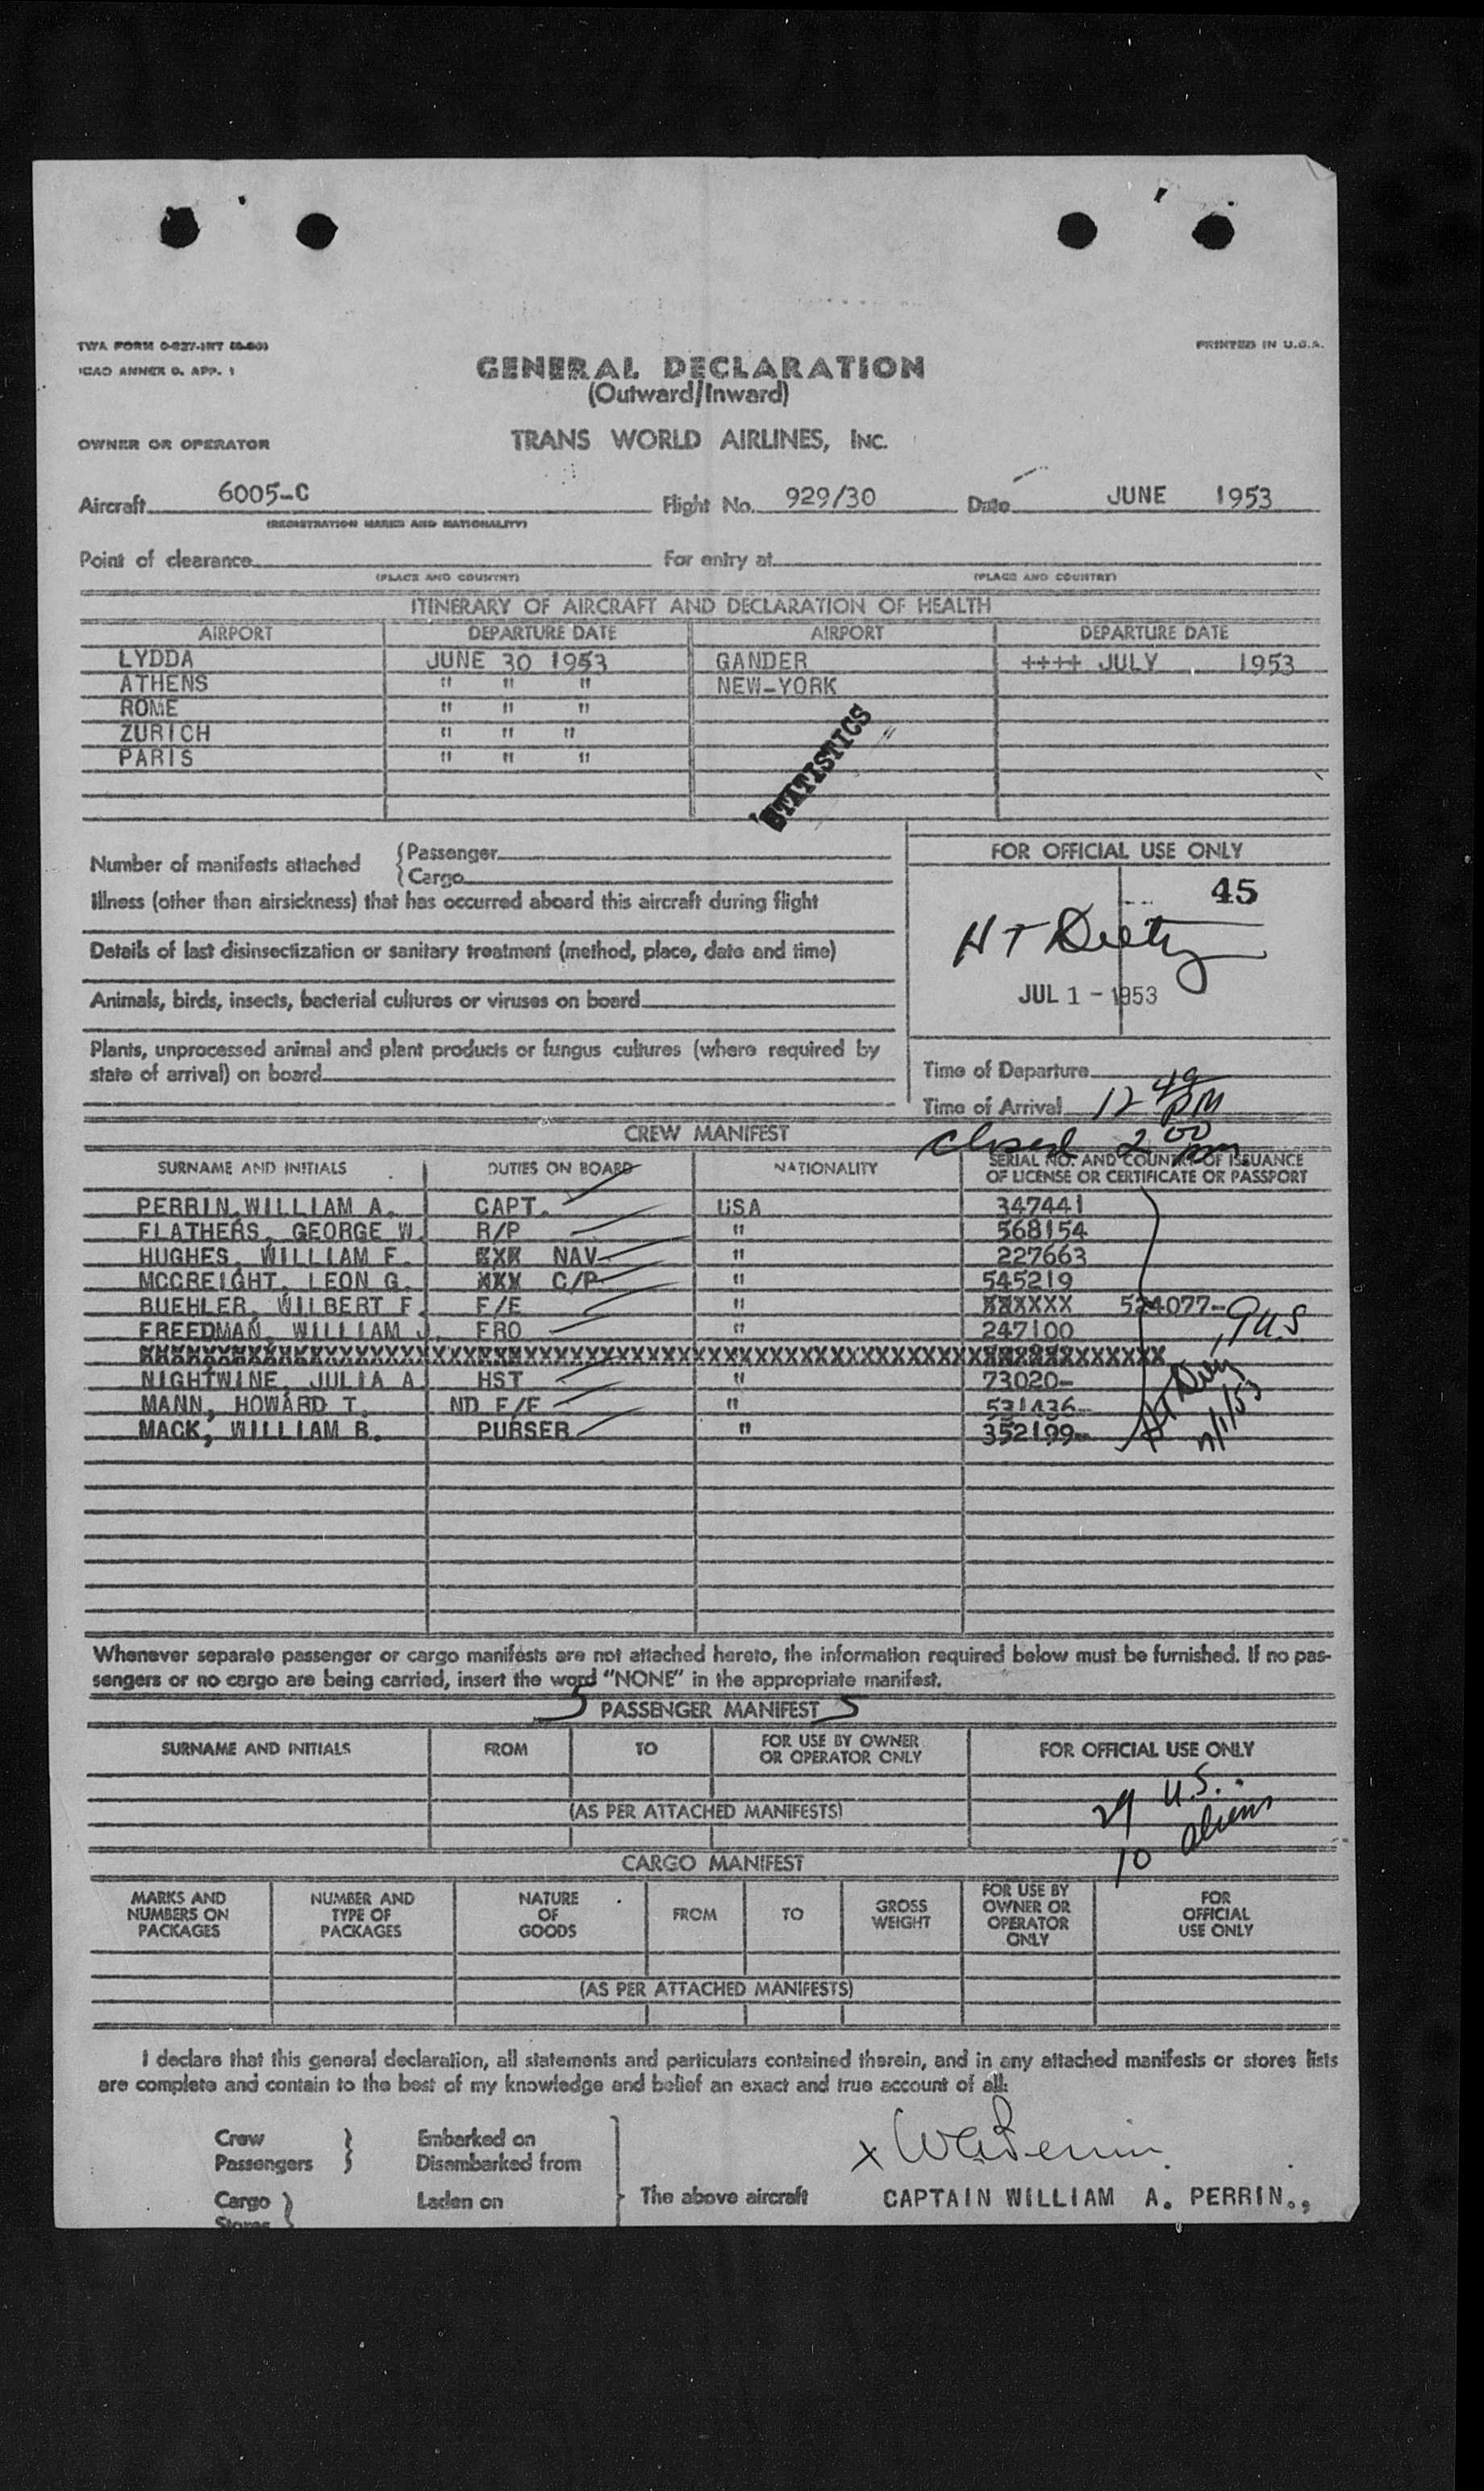 TWA FORM O-827-INT (6-50)
PRINTED IN U.S.A.
ICAO ANNEX 9. APP. 1
GENERAL DECLARATION
(Outward/Inward)
OWNER OR OPERATOR TRANS WORLD AIRLINES, INC.
Aircraft 6005-C Flight No. 929/30 Date JUNE 1953
(REGISTRATION MARKS AND NATIONALITY)
Point of clearance For entry at
(PLACE AND COUNTRY) (PLACE AND COUNTRY)
ITINERARY OF AIRCRAFT AND DECLARATION OF HEALTH
AIRPORT DEPARTURE DATE AIRPORT DEPARTURE DATE
LYDDA JUNE 30 1953 GANDER ++++ JULY 1953
ATHENS " " " NEW-YORK
ROME " " "
ZURICH " " "
PARIS " " "
STATISTICS
Number of manifests attached {Passenger
{Cargo
FOR OFFICIAL USE ONLY
45
Illness (other than airsickness) that has occurred aboard this aircraft during flight
H T Dietz
Details of last disinsectization or sanitary treatment (method, place, date and time)
JUL 1 - 1953
Animals, birds, insects, bacterial cultures or viruses on board
Plants, unprocessed animal and plant products or fungus cultures (where required by
state of arrival) on board
Time of Departure
Time of Arrival 12 49 PM
closed 2 00 pm
CREW MANIFEST
SURNAME AND INITIALS DUTIES ON BOARD NATIONALITY SERIAL NO. AND COUNTRY OF ISSUANCE
OF LICENSE OR CERTIFICATE OR PASSPORT
PERRIN,WILLIAM A. CAPT. USA 347441
FLATHERS, GEORGE W. R/P " 568154
HUGHES, WILLIAM F. XXX NAV " 227663
MCCREIGHT, LEON G. XXX C/P " 545219
BUEHLER, WILBERT F. F/E " XXXXXX 524077-
FREEDMAN, WILLIAM J. FRO " 247100
9 U.S.
XXXXXXXXXXXXXXXXXXXXXXXXXXXXXXXXXXXXXXXXXXXXXXXXXXXXXXXXXXXX
NIGHTWINE, JULIA A. HST " 73020-
MANN, HOWARD T. ND F/E " 531436-
MACK, WILLIAM B. PURSER " 352199-
HT Dietz
7/1/53
Whenever separate passenger or cargo manifests are not attached hereto, the information required below must be furnished. If no pas-
sengers or no cargo are being carried, insert the word "NONE" in the appropriate manifest.
5 PASSENGER MANIFEST 5
SURNAME AND INITIALS FROM TO FOR USE BY OWNER
OR OPERATOR ONLY FOR OFFICIAL USE ONLY
29 U.S.
(AS PER ATTACHED MANIFESTS)
10 aliens
CARGO MANIFEST
MARKS AND
NUMBERS ON
PACKAGES
NUMBER AND
TYPE OF
PACKAGES
NATURE
OF
GOODS
FROM
TO
GROSS
WEIGHT
FOR USE BY
OWNER OR
OPERATOR
ONLY
FOR
OFFICIAL
USE ONLY
(AS PER ATTACHED MANIFESTS)
I declare that this general declaration, all statements and particulars contained therein, and in any attached manifests or stores lists
are complete and contain to the best of my knowledge and belief an exact and true account of all:
Crew } Embarked on
Passengers } Disembarked from
x WAPerrin
Cargo } Laden on } The above aircraft CAPTAIN WILLIAM A. PERRIN.,
Stores